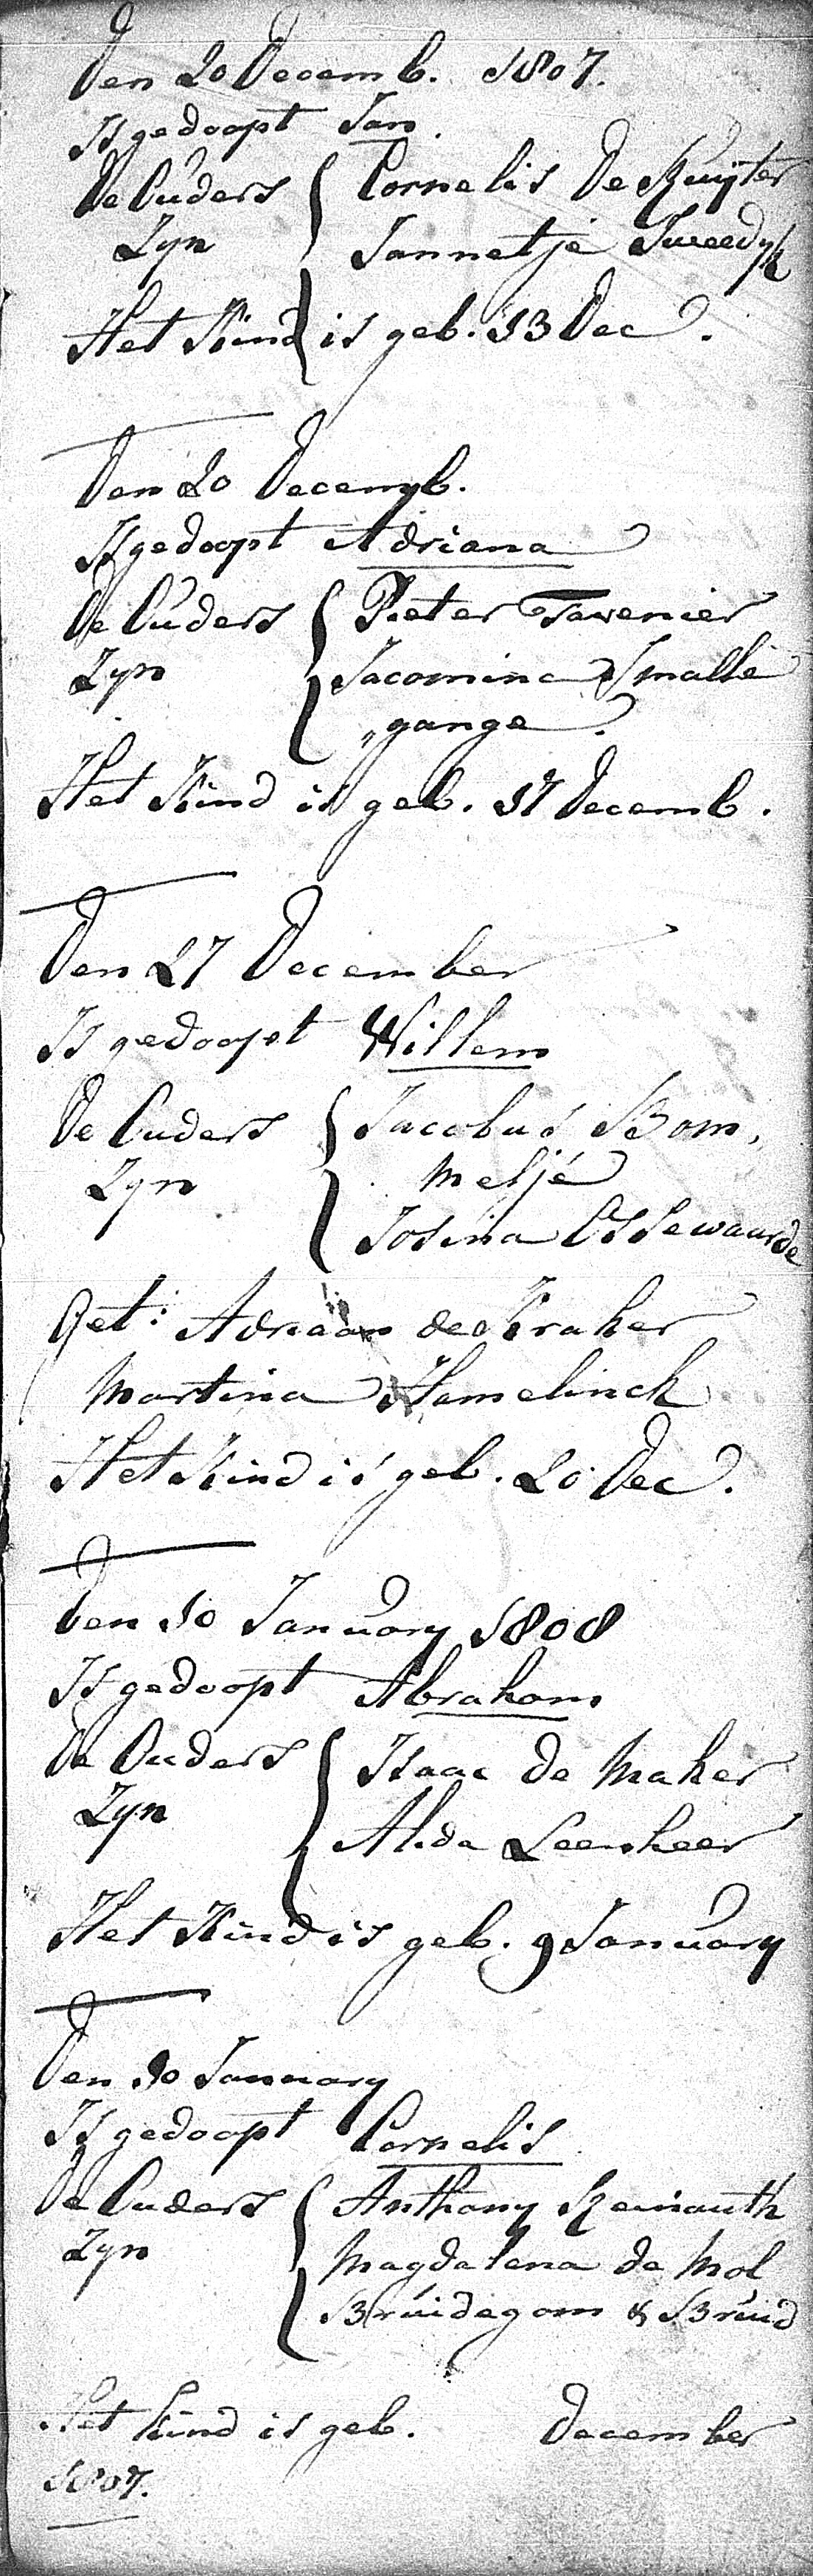 Den 20 Decemb. 1807.
Is gedoopt Jan.
De Ouders Cornelis De Ruijter
Zyn Jannetje Tweedyk
Het Kind is geb. 13 Dec.
Den 20 Decemb.
Is gedoopt Adriana
De Ouders Pieter Tavenier
Zyn Jacomina Smalle
„gange.
Het Kind is geb. 17 Decemb.
Den 27 December
Is gedoopt Willem
De Ouders Jacobus Bom,
Zyn meljé
Josina Ossewaarde
Get: Adriaan de Kraker
Martina Hamelinck
Het Kind is geb. 20 Dec.
Den 10 January 1808
Is gedoopt Abraham
De Ouders Isaac de Maker
Zyn Alida Leenheer
Het Kind is geb. 9 January
Den 10 January
Is gedoopt Cornelis
De Ouders Anthony
Zyn Magdalena de Mol
Bruidegom & Bruid
Het kind is geb. December
1807.